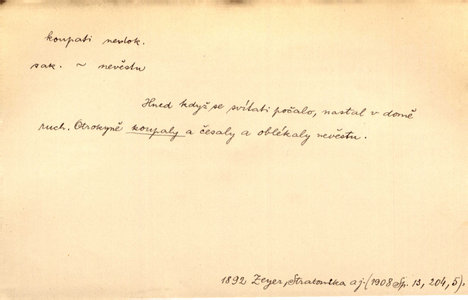 koupati nedok.
sak. ~ nevěstu
Hned když se svítati počalo, nastal v domě
ruch. Otrokyně koupaly a česaly a oblékaly nevěstu.
1892 Zeyer, Stratonika aj. (1908 Sp. 13, 204, 5).